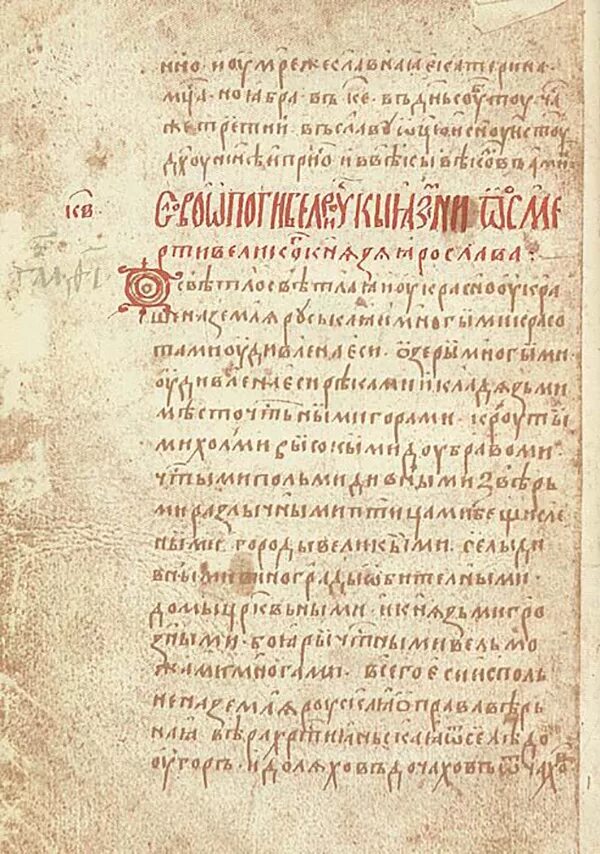 нно · и оумре жеславнаꙗ екатерина ·
мц҃а · ноꙗбра · въ · к҃е · въ дн҃ь соуⷠтоу · в ча
же третии · въ славоу ѿцю и сн҃оу и ст҃оу
дх҃оу и нн҃ѣ и прн҃о и в вѣкы вѣковъ ами҃
к҃в
Слово ѡ погибели роускыꙗ земли · и ѡ сме
рти великоⷢ кнѧзѧ ꙗрослава :
О свѣтло свѣтлаꙗ и оукрасно оукра
шена землѧ руськаꙗ и многыми красо
тами оудивлена еси · озеры многыми ·
оудивлена еси рѣками и кладѧзьми
мѣсточⷭтьными горами · кроуты
ми холми высокыми доубравоми ·
чⷭтыми польми дивными звѣрь
ми различными птицами бещисле
ными · городы великыми · селы ди
вными виногради ѡбителными ·
домы цр҃квьными · и кнѧзьми гро
зными · боꙗры чⷭтными вельмо
жами многами · всего еси испол
нена землѧ роускаꙗ ѡ прававѣрь
наꙗ вѣра хрⷭтиꙗньскаꙗ ѿселѣ до
оугоръ · и до лѧховъ до чаховъ ѿ чахо